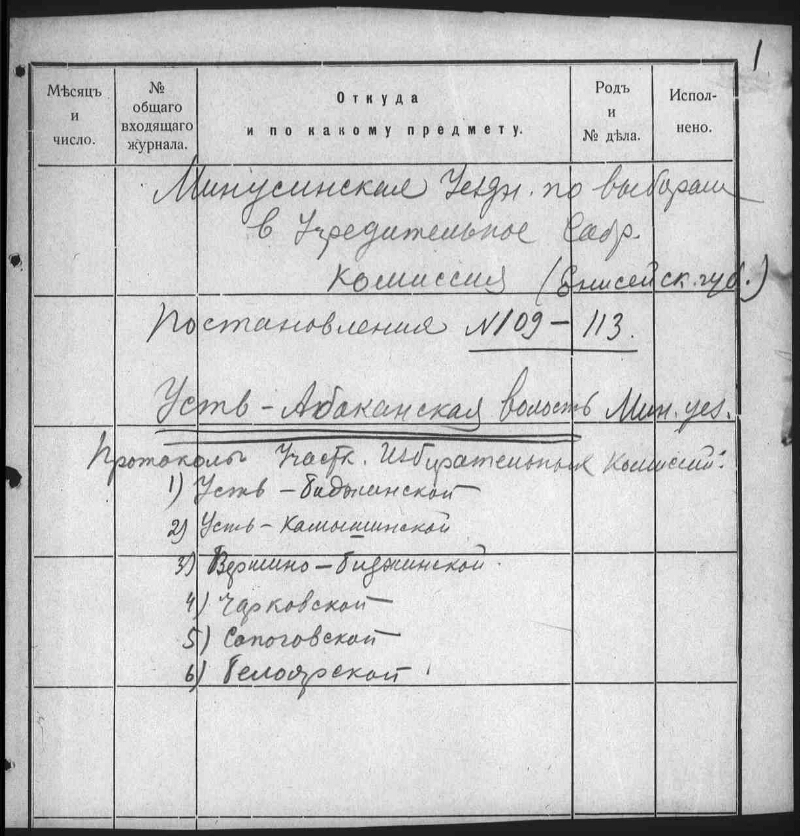 1
Мѣсяцъ
и
число.
№
общаго
входящаго
журнала.
Откуда
и по какому предмету.
Родъ
и
№ дѣла.
Испол-
нено.
Минусинская Уездн. по выборам
в Учредительное Собр.
комиссия (Енисейск. губ.)
Постановления №109 – 113.
Усть – Абаканская волость Мин. уез.
Протоколы Участк. Избирательных Комиссий:
1) Усть – Биджинской
2) Усть – Камышинской
3) Вершино – Биджинской
4) Чарковской
5) Сапоговской
6) Белоярской